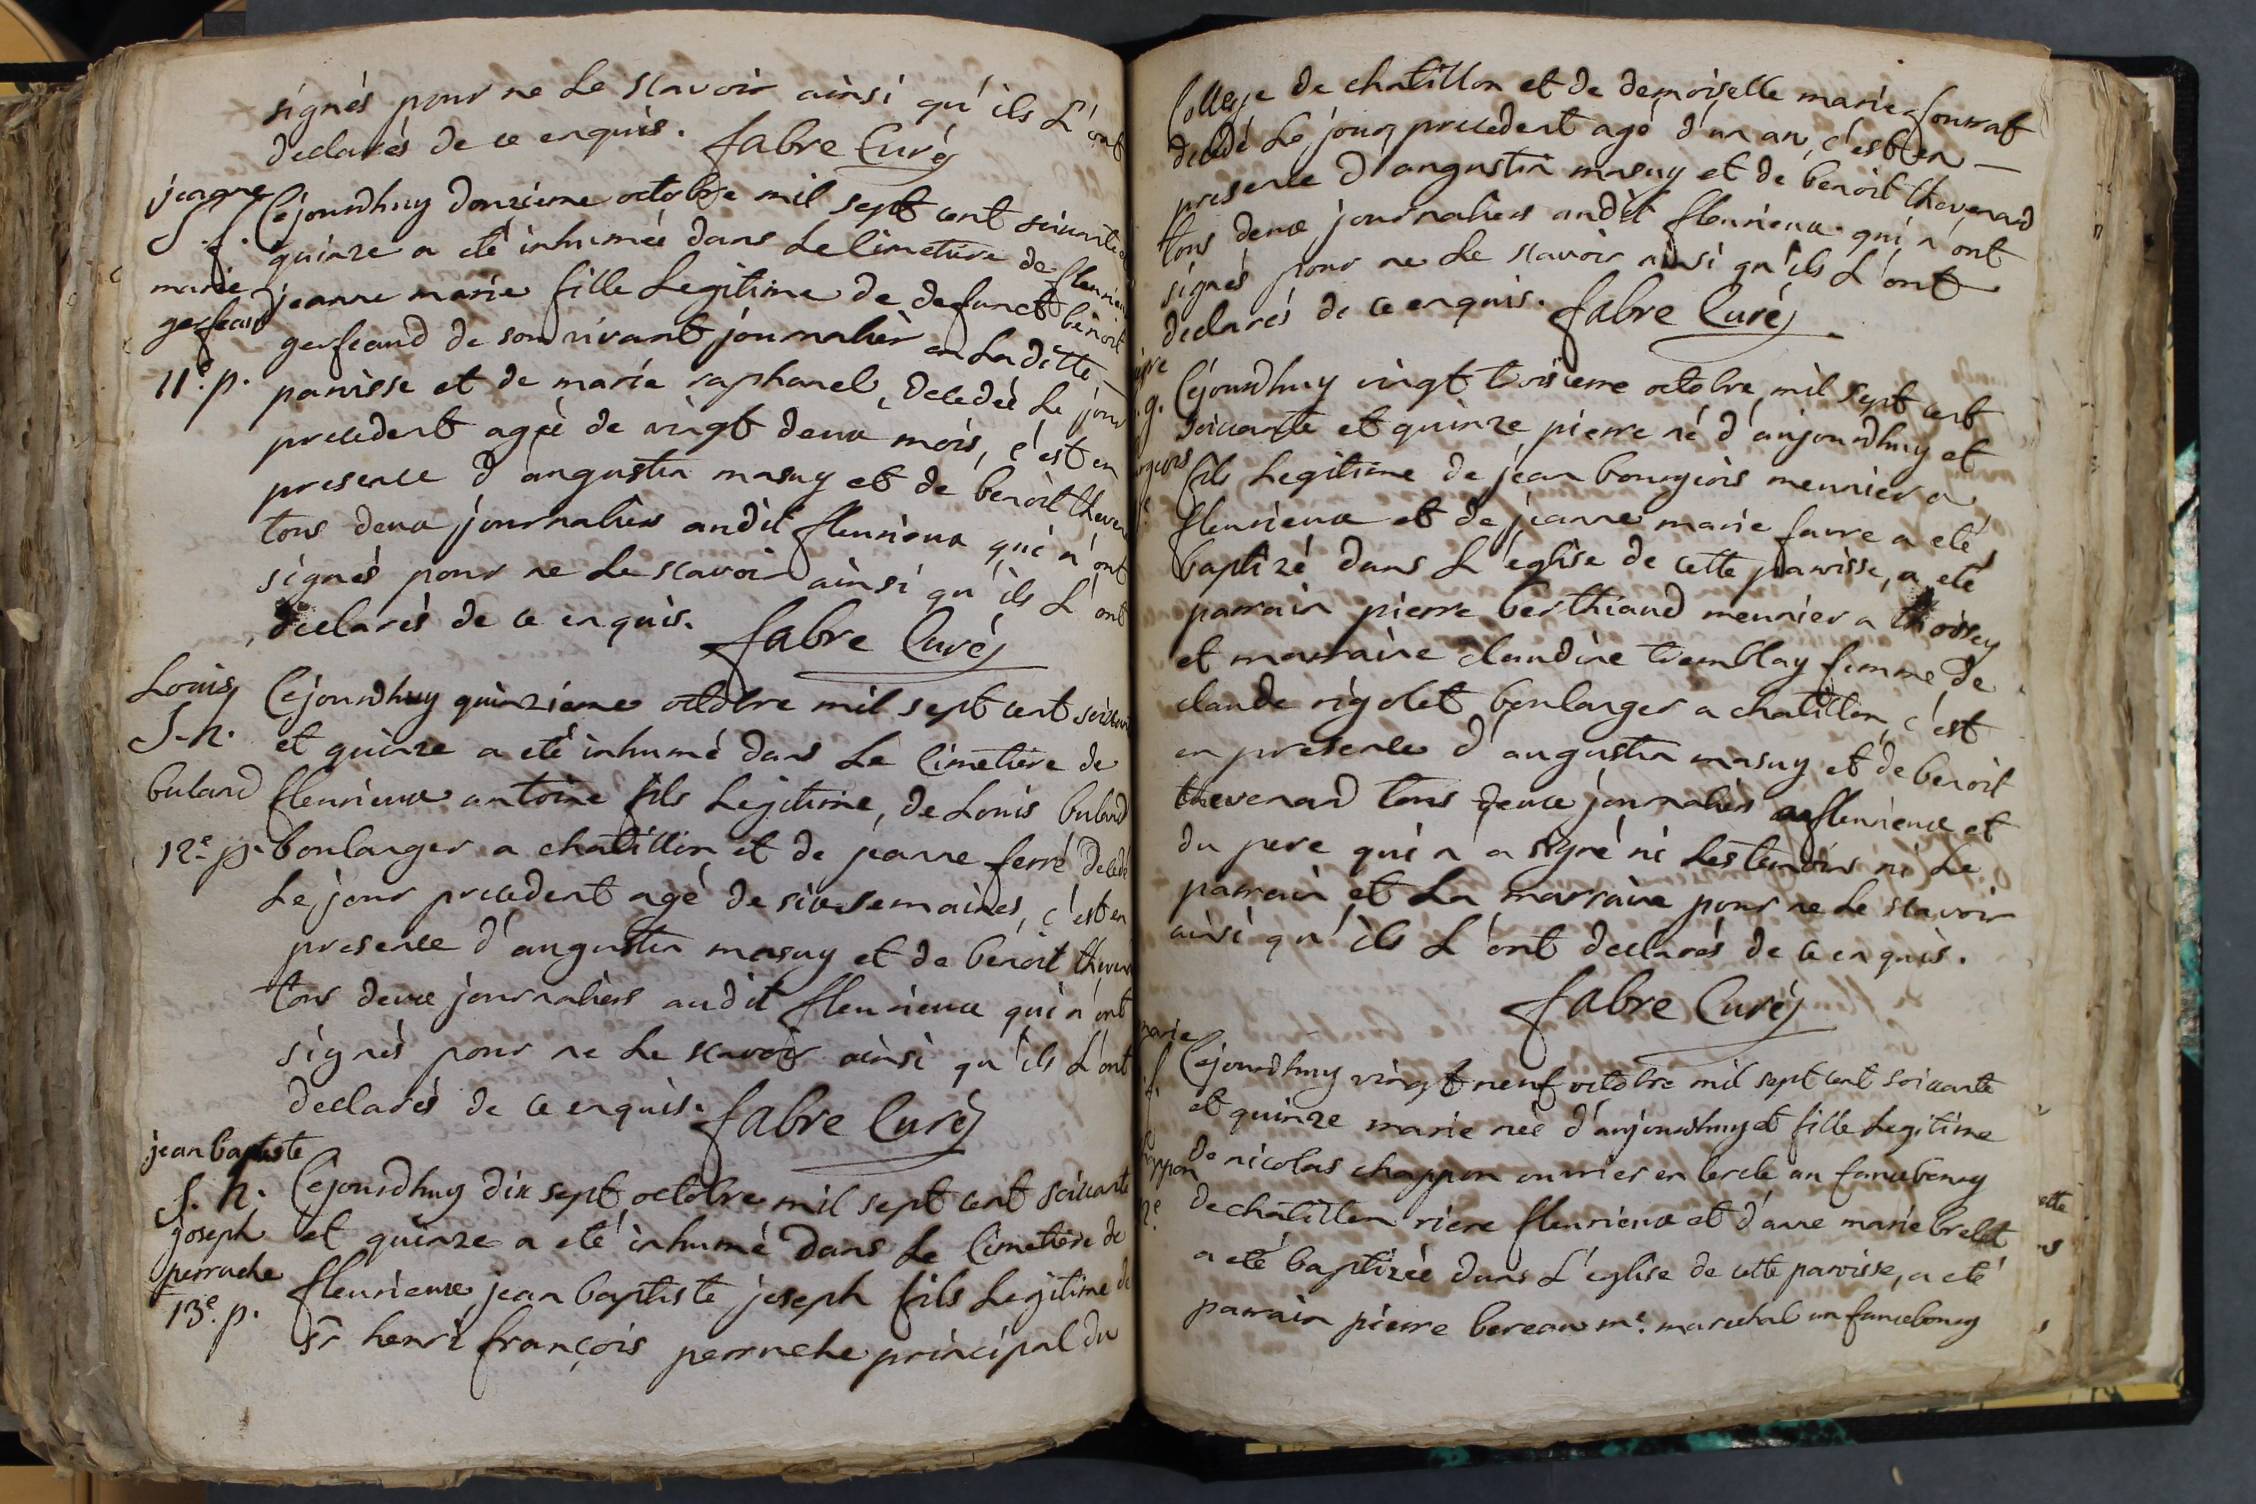 signés pour ne le scavoir ainsi qu'ils l'ont
declarés de ce enquis. fabre Curé
jeanne
S. f.
marie
gerfeaud
11.e p.
Cejourdhuy douzieme octobre mil sept cent soixante et
quinze a eté inhumée dans le Cimetiere de fleurieux
jeanne marie fille Legitime de defunct benoit
gerfeaud de son vivant journalier en Laditte
paroisse et de marie raphanel, decedée Le jour
precedent agée de vingt deux mois, c'est en
presence d'augustin masuy et de benoit theven
tous deux journaliers audit fleurieux qui n'ont
signés pour ne le scavoir ainsi qu'ils l'ont
declarés de ce enquis. fabre Curé
Louis
S. n.
buland
12.e p.
Cejourdhuy quinzieme octobre mil sept cent soixante
et quinze a eté inhumé dans Le Cimetiere de
fleurieux antoine fils Legitime, de Louis buland
boulanger a chatillon et de jeanne ferré decedé
Le jour precedent agé de six semaines, c'est en
presence d'augustin masuy et de benoit theven
tous deux journaliers audit fleurieux qui n'ont
signés pour ne le scavoir ainsi qu'ils L'ont
declarés de ce enquis. fabre Curé
jean baptiste
S. n.
joseph
perruche
13.e p.
Cejourdhuy dix sept octobre mil sept cent soixante
et quinze a eté inhumé dans Le Cimetiere de
fleurieux jean baptiste joseph fils Legitime de
Sr henri françois perruche principal du
College de chatillon et de demoiselle marie
decedé Le jour precedent agé d'un an, c'est en
presence d'augustin masuy et de benoit thevenard
tous deux journaliers audit fleurieux qui n'ont
signés pour ne le scavoir ainsi qu'ils L'ont
declarés de ce enquis. fabre Curé
Cejourdhuy vingt troisieme octobre mil sept cent
soixante et quinze pierre né d'aujourdhuy et
fils Legitime de jean bourgeois meunier a
fleurieux et de jeanne marie favre a eté
baptizé dans L'eglise de cette paroisse, a eté
parrain pierre berthiaud meunier a thoissey
et marraine claudine tremblay femme de
claude rigolet boulanger a chatillon, c'est
en presence d'augustin masuy et de benoit
thevenard tous deux journaliers a fleurieux et
du pere qui n'a signé ni Les temoins ni Le
parrain et La marraine pour ne le scavoir
ainsi qu'ils L'ont declarés de ce enquis.
fabre Curé
marie
f.
chappon
2.e
Cejourdhuy vingt neuf octobre mil sept cent soixante
et quinze marie née d'aujourdhuy et fille Legitime
de nicolas chappon ouvrier en cercle au fauxbourg
de chatillon riere fleurieux et d'anne marie brelet
a eté baptizée dans L'eglise de cette paroisse, a eté
parrain pierre bereau m.e marechal au fauxbourg